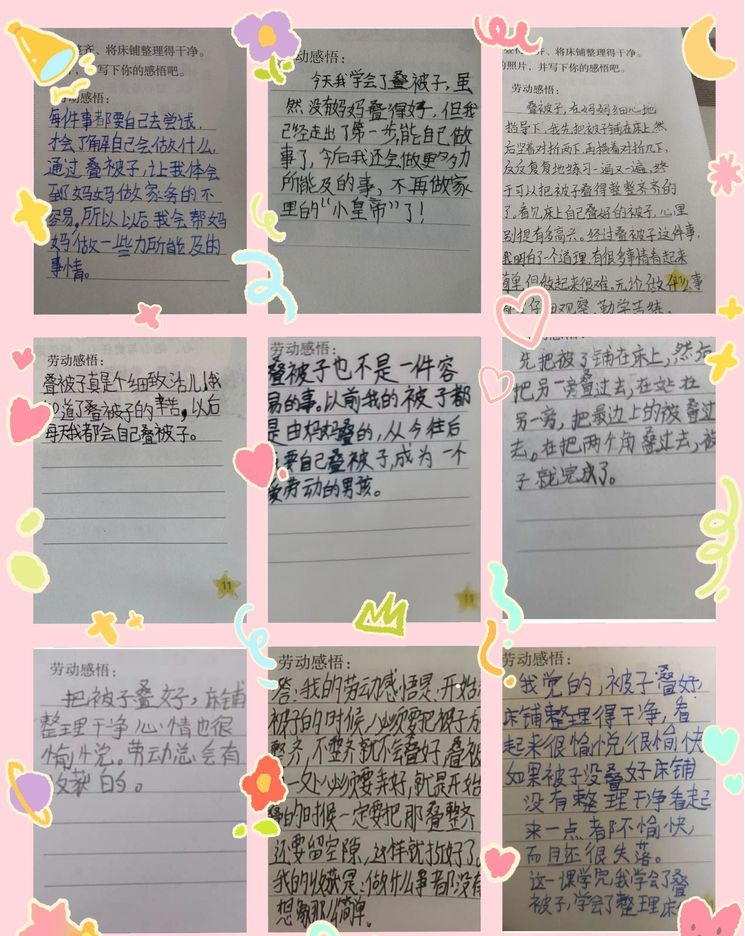 整齐、将床铺整理得干净。
，并写下你的感悟吧。
劳动感悟：
每件事都要自己去尝试，
才会了解自己会做什么，
通过叠被子，让我体会
到妈妈做家务的不
容易，所以以后我会帮妈
妈做一些力所能及的
事情。
动感悟：
今天我学会了叠被子，虽
然没有妈妈叠得好，但我
已经走出了第一步，能自己做
事了，今后我还会做更多力
所能及的事，不再做家
里的“小皇帝”了！
齐、将床铺整理得干净。
的照片，并写下你的感悟吧。
劳动感悟：
叠被子，在妈妈细心地
指导下，我先把被子铺在床上，然
后竖着对折两下，再横着对折几下，
反反复复地练习一遍又一遍，终
于可以把被子叠得整整齐齐的
了。看见床上自己叠好的被子，心里
别提有多高兴。经过叠被子这件事，
我明白了一个道理，有很多事情看起来
简单，但做起来很难。无论做什么事
仔细观察，勤学苦练。
劳动感悟：
叠被子真是个细致活儿！我
知道了叠被子的辛苦，以后
每天我都会自己叠被子。
11
劳动感悟：
叠被子也不是一件容
易的事。以前我的被子都
是由妈妈叠的，从今往后
要自己叠被子，成为一个
爱劳动的男孩。
11
感悟：
先把被子铺在床上，然后
把另一旁叠过去，在
另一旁，把最边上的被叠过
去。在把两个角叠过去，被
子就完成了。
劳动感悟：
把被子叠好，床铺
整理干净心情也很
愉悦。劳动总会有
收获的。
劳动感悟：
答：我的劳动感悟是：开始
被子的时候，必须要把被子方
整齐，不整齐就不会叠好，叠被
一处必须要弄好，就是开始
叠的时候一定要把那叠整齐
还要留空隙，这样就折好了。
我的收获是：做什么事都没有
想象那么简单。
劳动感悟：
我觉的，被子叠好，
床铺整理得干净，看
起来很愉悦很愉快
如果被子没叠好床铺
没有整理干净看起
来一点都不愉快，
而且还很失落。
这一课学完，我学会了叠
被子，学会了整理床